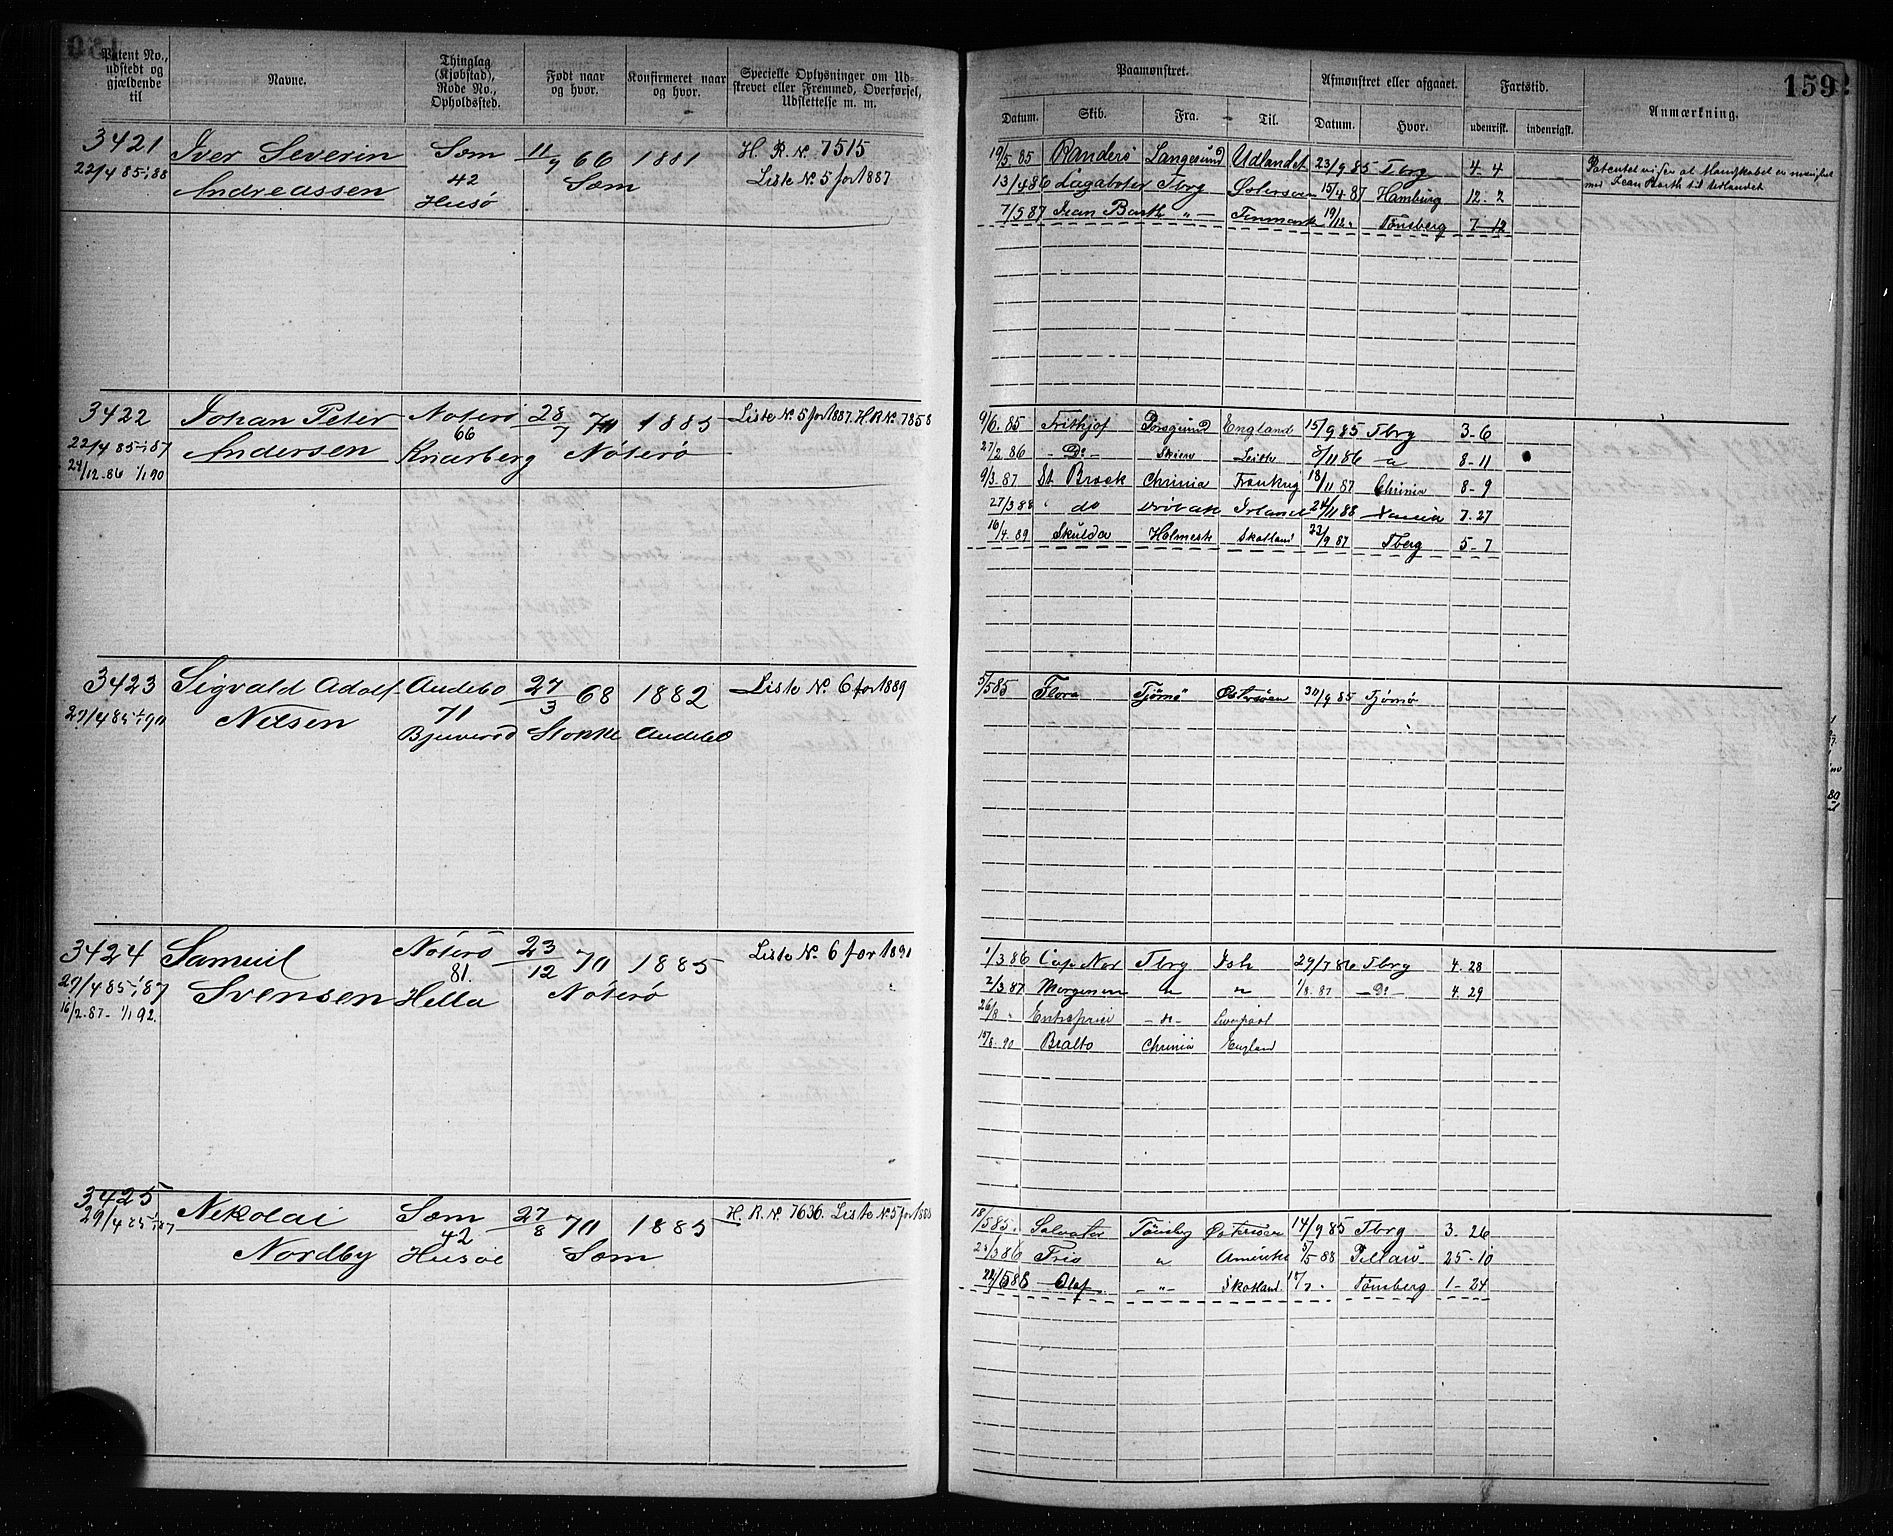 Patent No., udstedt og gjældende til
Navne.
Thinglag (Kjøbstad), Rode No., Opholdssted.
Født naar og hvor.
Konfirmeret naar og hvor.
Specielle Oplysninger om Udstrevet eller Fremmed, Overførsel, Udslettelse m. m.
Paamønstret.
Afmønstret eller afgaaet.
Fartstid.
Anmærkning.
159
Datum. Skib. Fra. Til. Datum. Hvor. udenrigst. indenrigst.
3421 Iver Severin Sæm 11/9 66 1881 H. R. No. 7515
22/4 85 - 1/1 88 Andreassen 42 Sæm Liste No. 5 for 1887
Husø
19/5 85 Randers Langesund Udlandet 23/9 85 Tbrg 4-4
13/4 86 Lagabøter Tbrg Østersøen 15/4 87 Hamburg 12-2
7/5 87 Jean Barth " — Finmarken 19/12 " Tønsberg 7-12
Patentet viser at Mandskabet er
med Jean Barth til Udlandet
3422 Johan Peter Nøterø 28/7 70 1885 Liste No. 5 for 1887. H.R.No. 7858
22/4 85 - 1/1 87 Andersen 66 Knarberg Nøterø
24/12 86 1/1 90
9/6 85 Frithjof Porsgrund England 15/9 85 Tbrg 3-6
27/2 86 - Do - Skien Leith 8/11 86 " 8-11
9/3 87 St. Brock Chrinia Frankrig 18/11 87 Chrinia 8-9
27/3 88 " do Drøbak Irland 24/11 88 7-27
16/4 89 Skulda Holmestr Skotland 23/9 87 Tberg 5-7
3423 Sigvald Adolf Andebo 27/3 68 1882 Liste No. 6 for 1889
27/4 85 1/1 90 Nilsen 71 Stokke Andebo
Bjuerød
5/5 85 Flora Tjømø Østersøen 30/9 85 Tjømø
3424 Samuel Nøterø 23/12 70 1885 Liste No. 6 for 1891
27/4 85 - 1/1 87 Svensen 81. Hella Nøterø
16/2 87 - 1/1 92.
1/3 86 Cap Nor Tbrg Ish 29/7 86 Tbrg 4.28
2/3 87 Morgenen " " 1/8 87 - Do - 4.29
26/8 " Entreprise - do - Liverpool
15/8 90 Rialto Chrinia England
3425 Nikolai Sæm 27/8 70 1885 H. R. No. 7636. Liste No. 5 for 1888
29/4 85 1/1 87 Nordby 42 Husøe Sæm
18/5 85. Salvator Tønsbg Østersøen 14/9 85 Tbrg 3.26
2 /3 86 Trio " Amerika 5/5 88 Pillau 25-10
22/5 88 Olaf. - " - Skotland 17/7 " Tønsberg 1-24